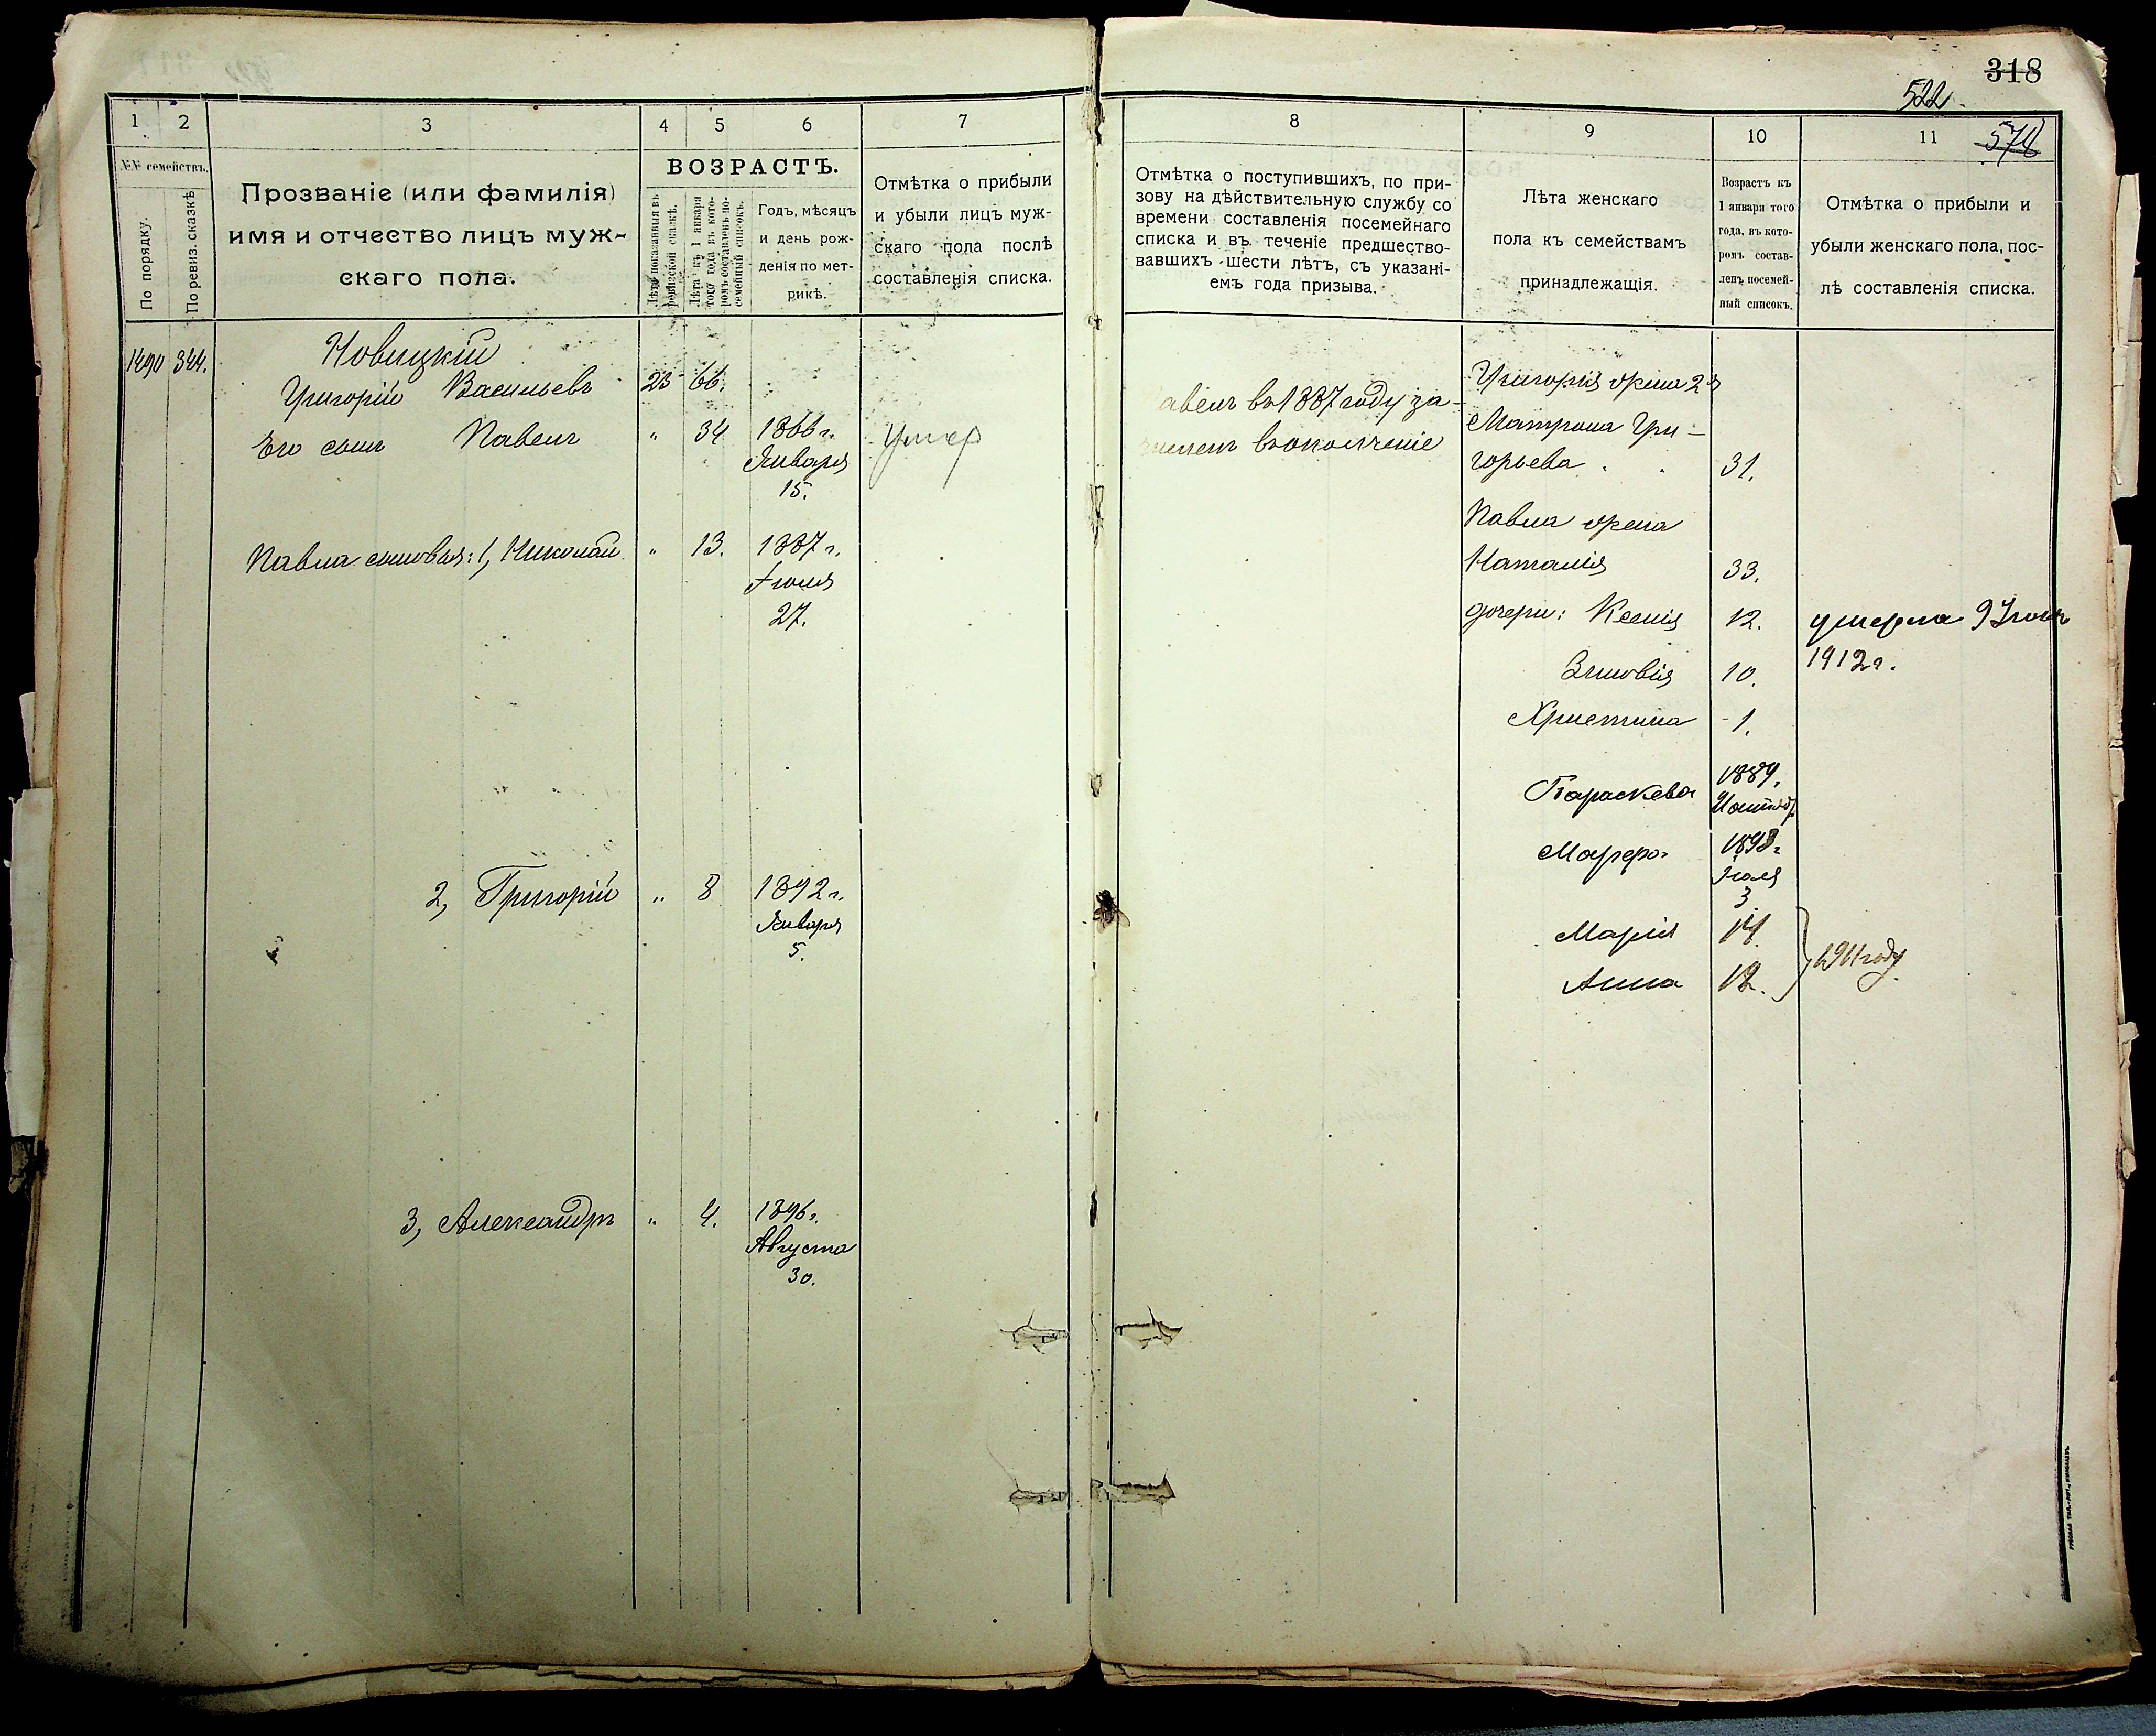 318
522
578
1 2 3 4 5 6 7
№№ семействъ.
По порядку.
По ревиз. сказкѣ
Прозваніе (или фамилія)
имя и отчество лицъ муж-
скаго пола.
ВОЗРАСТЪ.
Лѣта показанныя въ
ревизской сказкѣ.
Лѣта къ 1 января
того года въ кото-
ромъ составленъ по-
семейный списокъ.
Годъ, мѣсяцъ
и день рож-
денія по мет-
рикѣ.
Отмѣтка о прибыли
и убыли лицъ муж-
скаго пола послѣ
составленія списка.
1490 344.
Новицкій
Григорій Васильевъ 23 66.
Его сынъ Павелъ " 34 1866 г. умер
Января
15.
Павла сыновья: 1, Николай " 13. 1887 г.
Іюля
27.
2, Григорій " 8 1892 г.
Января
5.
3, Александръ " 4. 1896 г.
Августа
30.
8 9 10 11
Отмѣтка о поступившихъ, по при-
зову на дѣйствительную службу со
времени составленія посемейнаго
списка и въ теченіе предшество-
вавшихъ шести лѣтъ, съ указані-
емъ года призыва.
Лѣта женскаго
пола къ семействамъ
принадлежащія.
Возрастъ къ
1 января того
года, въ кото-
ромъ состав-
ленъ посемей-
ный списокъ.
Отмѣтка о прибыли и
убыли женскаго пола, пос-
лѣ составленія списка.
авелъ въ 1887 году за-
численъ въ ополченіе
Григорія жена 2я
Матрона Гри-
горьева 31.
Павла жена
Наталія 33.
дочери: Ксенія 12. умерла 9 Іюня
1912 г.
Зиновія 10.
Христина 1.
Параскева 1889,
Марѳа 1898 г.
Іюля
3
Марія 14.
Анна 12.
1911 году